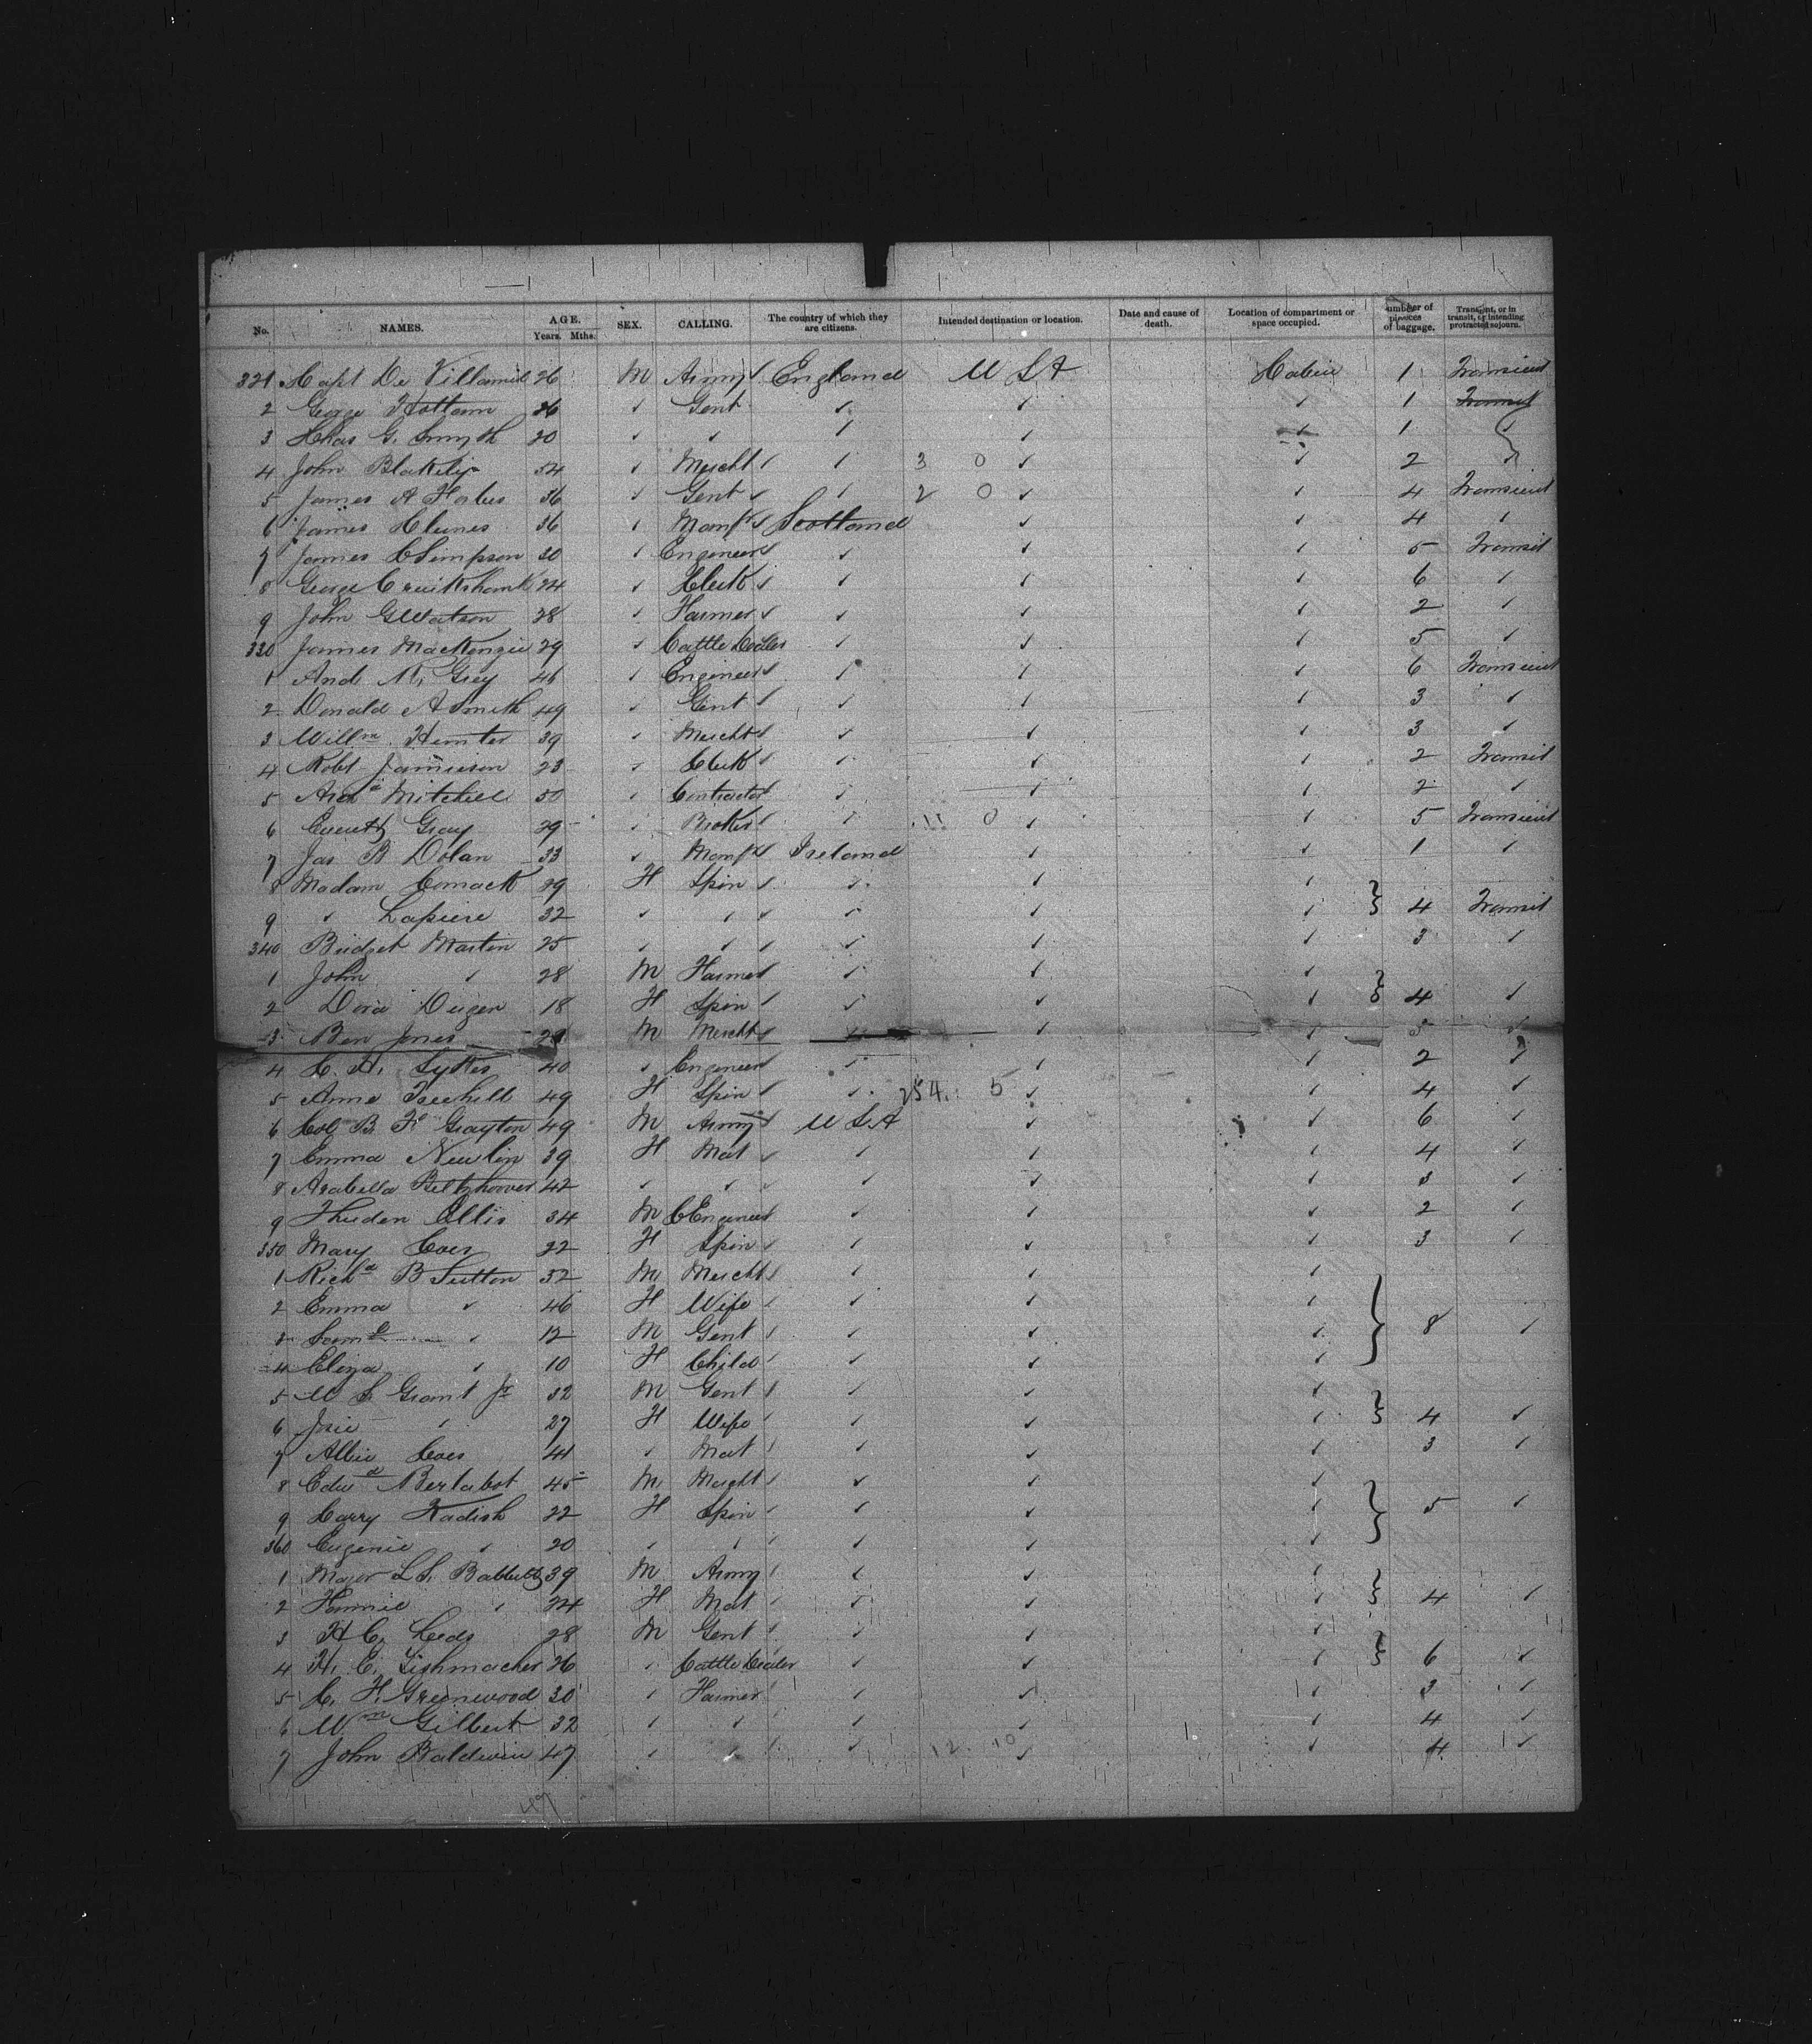 No. NAMES. AGE. Years. Mths. SEX. CALLING. The country of which they are citizens. Intended destination or location. Date and cause of death. Location of compartment or space occupied. Number of pieces of baggage. Transient, or in transit, or intending protracted sojourn.
321 Capt De Villamil 26 M Army England U S A Cabin 1 Transient
2 George Hottam 26 ✓ Gent ✓ ✓ ✓ 1 Transit
3 Chas G. Smyth 20 ✓ ✓ ✓ ✓ ✓ 1 ✓
4 John Blakely 54 ✓ Mercht ✓ 3 0 ✓ ✓ 2 ✓
5 James A Forbes 36 ✓ Gent ✓ 2 0 ✓ ✓ 4 Transient
6 James Clunes 36 ✓ Manfr Scotland ✓ ✓ 4 ✓
7 James C Simpson 30 ✓ Engineer ✓ ✓ ✓ 5 Transit
8 George Cruikshank 24 ✓ Clerk ✓ ✓ ✓ 6 ✓
9 John G Watson 28 ✓ Farmer ✓ ✓ ✓ 2 ✓
330 James MacKenzie 29 ✓ Cattle Dealer ✓ ✓ ✓ 5 ✓
1 And. M. Grey 46 ✓ Engineer ✓ ✓ ✓ 6 Transient
2 Donald A Smith 49 ✓ Gent ✓ ✓ ✓ 3 ✓
3 Willm Hunter 39 ✓ Mercht ✓ ✓ ✓ 3 ✓
4 Robt Jamieson 23 ✓ Clerk ✓ ✓ ✓ 2 Transit
5 Archd Mitchell 50 ✓ Contractor ✓ ✓ ✓ 2 ✓
6 Everett Gray 29 ✓ Broker ✓ 11 0 ✓ ✓ 5 Transient
7 Jas B Dolan 33 ✓ Manfr Ireland ✓ ✓ 1 ✓
8 Madam Comack 29 F Spin ✓ ✓ ✓
9 ✓ Lapiere 32 ✓ ✓ ✓ ✓ ✓ 4 Transit
340 Bridget Martin 25 ✓ ✓ ✓ ✓ ✓ 3 ✓
1 John ✓ 28 M Farmer ✓ ✓ ✓
2 Dora Dugen 18 F Spin ✓ ✓ ✓ 4 ✓
3 Ben Jones 29 M Mercht ✓ ✓ ✓ 3 ✓
4 C. H. Sykes 40 ✓ Engineer ✓ ✓ ✓ 2 ✓
5 Anne Treehill 49 F Spin ✓ 254. 5 ✓ ✓ 4 ✓
6 Col B. F. Grayton 49 M Army U S A ✓ ✓ 6 ✓
7 Emma Newlin 39 F Mat ✓ ✓ ✓ 4 ✓
8 Arabella Beltzhoover 42 ✓ ✓ ✓ ✓ ✓ 3 ✓
9 Theiden Ellis 34 M C Engineer ✓ ✓ ✓ 2 ✓
350 Mary Coes 22 F Spin ✓ ✓ ✓ 3 ✓
1 Richd B Sutton 52 M Mercht ✓ ✓ ✓
2 Emma ✓ 46 F Wife ✓ ✓ ✓
3 Saml ✓ 12 M Gent ✓ ✓ ✓ 8 ✓
4 Eliza ✓ 10 F Child ✓ ✓ ✓
5 U S. Grant Jr 32 M Gent ✓ ✓ ✓
6 Josie ✓ 27 F Wife ✓ ✓ ✓ 4 ✓
7 Albie Coes 41 ✓ Mat ✓ ✓ ✓ 3 ✓
8 Edwd Bertabot 45 M Mercht ✓ ✓ ✓
9 Carry Kadish 22 F Spin ✓ ✓ ✓ 5 ✓
360 Eugenie ✓ 20 ✓ ✓ ✓ ✓ ✓
1 Major L S. Babbitt 39 M Army ✓ ✓ ✓
2 Fannie ✓ 24 F Mat ✓ ✓ ✓ 4 ✓
3 H C. Leeds 28 M Gent ✓ ✓ ✓
4 H. E. Tishmacher 26 ✓ Cattle Dealer ✓ ✓ ✓ 6 ✓
5 C. H. Greenwood 30 ✓ Farmer ✓ ✓ ✓ 3 ✓
6 Wm Gilbert 32 ✓ ✓ ✓ ✓ ✓ 4 ✓
7 John Baldwin 47 ✓ ✓ ✓ 12 10 ✓ ✓ 4 ✓
47